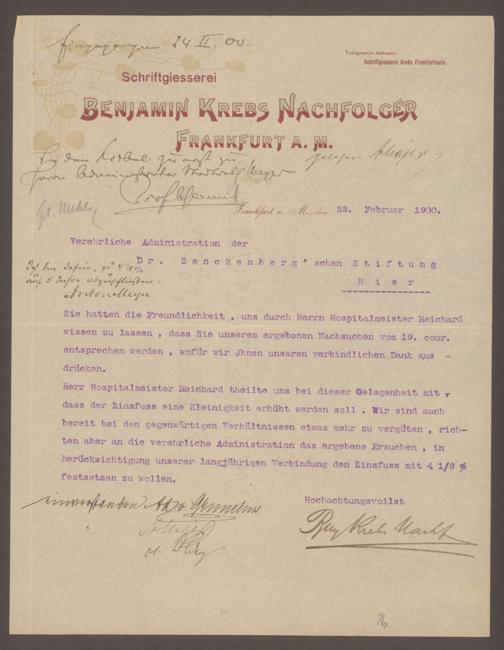 Eingegangen 24 II. 00.
Telegramm-Adresse:
Schriftgiesserei Krebs Frankfurtmain.
Schriftgiesserei
BENJAMIN KREBS NACHFOLGER
FRANKFURT A. M.
zu
Herrn
Frankfurt a. M., den 22. Februar 1900.
Verehrliche Administration der
Dr. Senckenberg'schen Stiftung
Hier
Ich bin dafür, zu 4 1/8 %
auf 5 Jahre abzuschließen.
Anton Meyer
Sie hatten die Freundlichkeit , uns durch Herrn Hospitalmeister Reichard
wissen zu lassen , dass Sie unserem ergebenen Nachsuchen vom 19. cour.
entsprechen werden , wofür wir Jhnen unseren verbindlichen Dank aus -
drücken.
Herr Hospitalmeister Reichard theilte uns bei dieser Gelegenheit mit ,
dass der Zinsfuss eine Kleinigkeit erhöht werden soll . Wir sind auch
bereit bei den gegenwärtigen Verhältnissen etwas mehr zu vergüten , rich-
ten aber an die verehrliche Administration das ergebene Ersuchen , in
Berücksichtigung unserer langjährigen Verbindung den Zinsfuss mit 4 1/8 %
festsetzen zu wollen.
Hochachtungsvollst
einverstanden
Benj Krebs Nachf